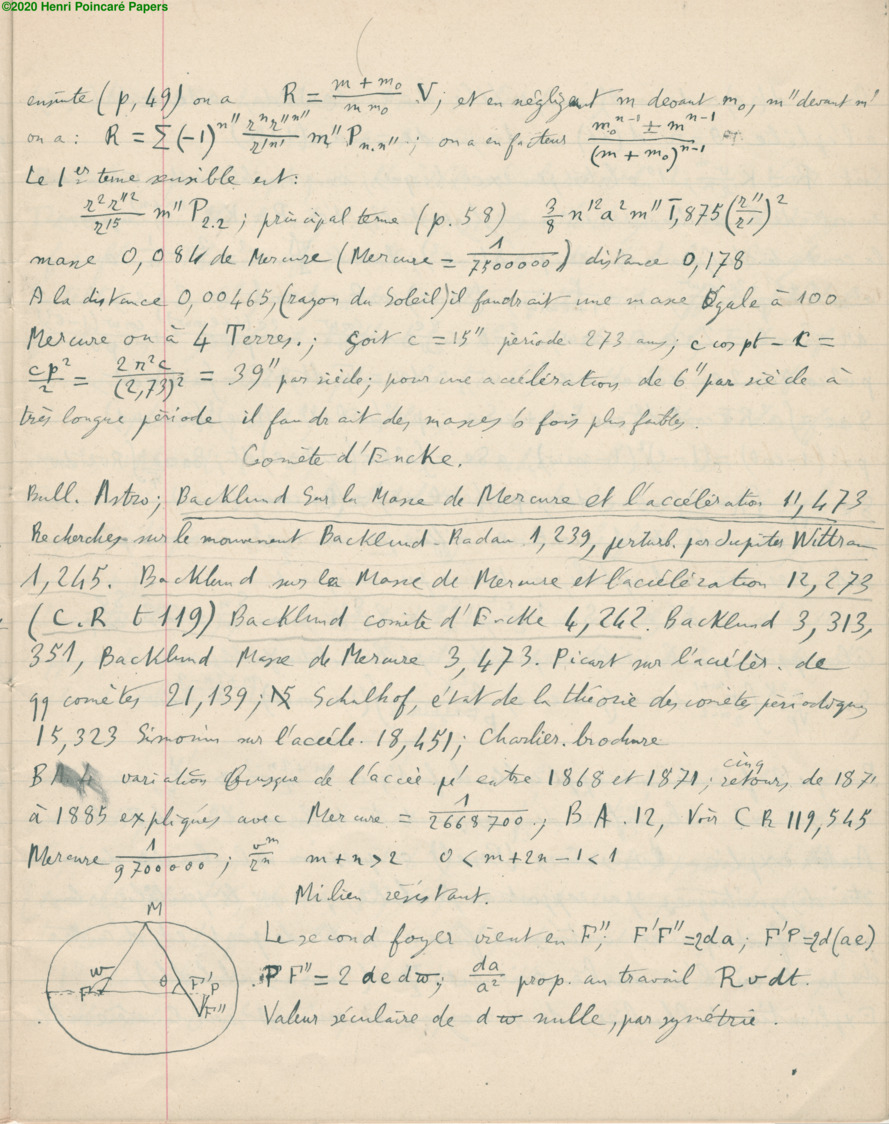 ©2020 Henri Poincaré Papers
ensuite (p, 49) on a R = \frac{m + m_0}{m m_0} V; et en négligeant m devant m_0, m'' devant m'
on a : R = Σ (-1)^{n''} \frac{r^n r''^{n''}}{r'^{n'}} m'' P_{n.n''} ; on a en facteur \frac{m_0^{n-1} ± m^{n-1}}{(m + m_0)^{n-1}}
Le 1er terme sensible est :
\frac{r^2 r''^2}{r'^5} m'' P_{2.2} ; principal terme (p. 58) \frac{3}{8} n'^2 a^2 m'' 1,875 (\frac{r''}{r'})^2
masse 0,084 de Mercure (Mercure = \frac{1}{7500000}) distance 0,178
A la distance 0,00465, (rayon du Soleil) il faudrait une masse égale à 100
Mercure ou à 4 Terres. ; soit c = 15'' période 273 ans ; c cos pt - c =
\frac{cp^2}{2} = \frac{2π^2c}{(2,73)^2} = 39'' par siècle ; pour une accélération de 6'' par siècle à
très longue période il faudrait des masses 6 fois plus faibles.
Comète d'Encke.
Bull. Astro ; Backlund Sur la Masse de Mercure et l'accélération 11, 473
Recherches sur le mouvement Backlund - Radau 1, 239, perturb. par Jupiter Wittram
1, 245. Backlund sur la Masse de Mercure et l'accélération 12, 273
(C.R t 119) Backlund comète d'Encke 4, 242. Backlund 3, 313,
351, Backlund Masse de Mercure 3, 473. Picart sur l'accélér. de
qq comètes 21, 139 ; 15 Schulhof, état de la théorie des comètes périodiques
15, 323 Simonin sur l'accéle. 18, 451 ; Charlier. brochure
B A 4 variation brusque de l'accé pé entre 1868 et 1871 ; cinq retours, de 1871
à 1885 expliqués avec Mercure = \frac{1}{2668700}. ; B A . 12, Voir C R 119, 545
Mercure \frac{1}{9700000} ; \frac{v^m}{r^n} m + n > 2 0 < m + 2n - 1 < 1
Milieu résistant.
Le second foyer vient en F'' ; F'F'' = 2da ; F'P = 2d(ae)
PF'' = 2 ae dϖ ; \frac{da}{a^2} prop. au travail R v dt.
Valeur séculaire de dϖ nulle, par symétrie.
M
w
F
θ
F'
P
F''